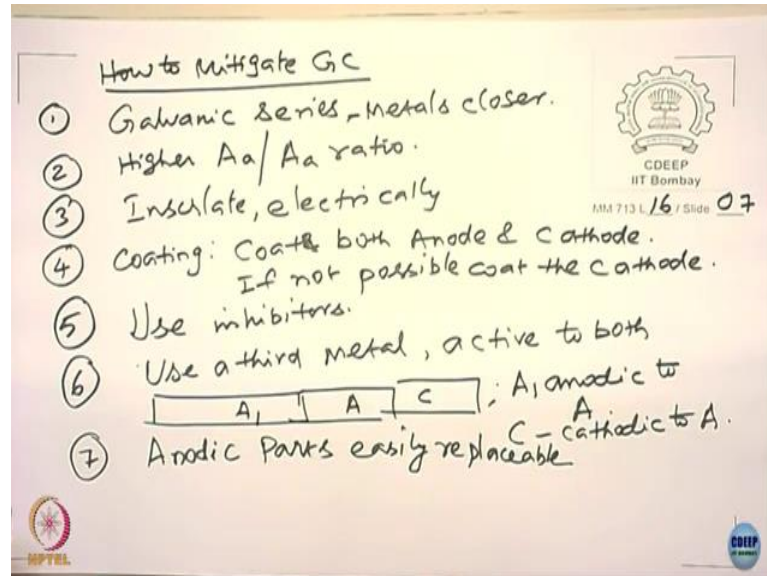 How to Mitigate GC
① Galvanic Series, Metals closer.
② Higher Aa/Aa ratio.
③ Insulate, electrically
④ Coating: Coat both Anode & Cathode.
If not possible coat the Cathode.
⑤ Use inhibitors.
⑥ Use a third metal, active to both
A₁ A C ; A₁ anodic to
A
C - cathodic to A.
⑦ Anodic Parts easily replaceable
CDEEP
IIT Bombay
MM 713 L 16 / Slide 07
NPTEL
CDEEP